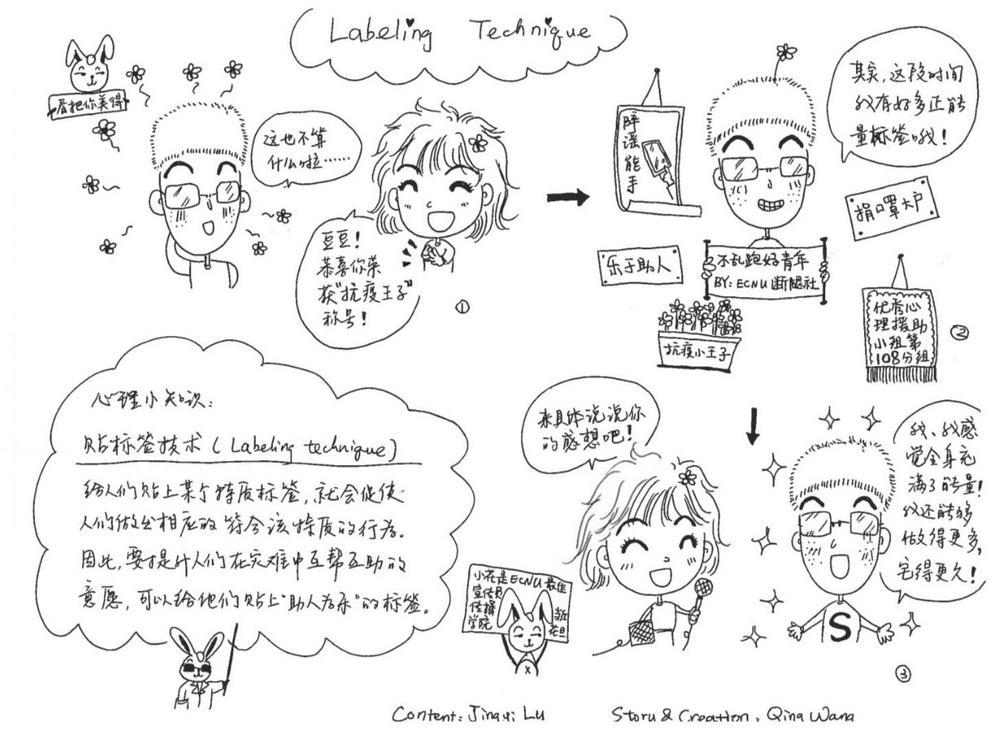 Labeling Technique
看把你美得
这也不算
什么啦……
豆豆！
恭喜你荣
获“抗疫王子”
称号！
①
辟谣能手
其实，这段时间
我有好多正能
量标签哦！
捐口罩大户
乐于助人
不乱跑好青年
BY: ECNU断腿社
抗疫小王子
优秀心
理援助
小组第
108分组
②
心理小知识：
贴标签技术（Labeling technique）
给人们贴上某个特质标签，就会促使
人们做出相应的符合该特质的行为。
因此，要提升人们在灾难中互帮互助的
意愿，可以给他们贴上“助人为乐”的标签。
来具体说说你
的感想吧！
小花是ECNU最佳
宣传
传播
学院
花旦
我、我感
觉全身充
满了能量！
我还能够
做得更多，
宅得更久！
S
③
Content: Jingyi Lu
Story & Creation: Qing Wang